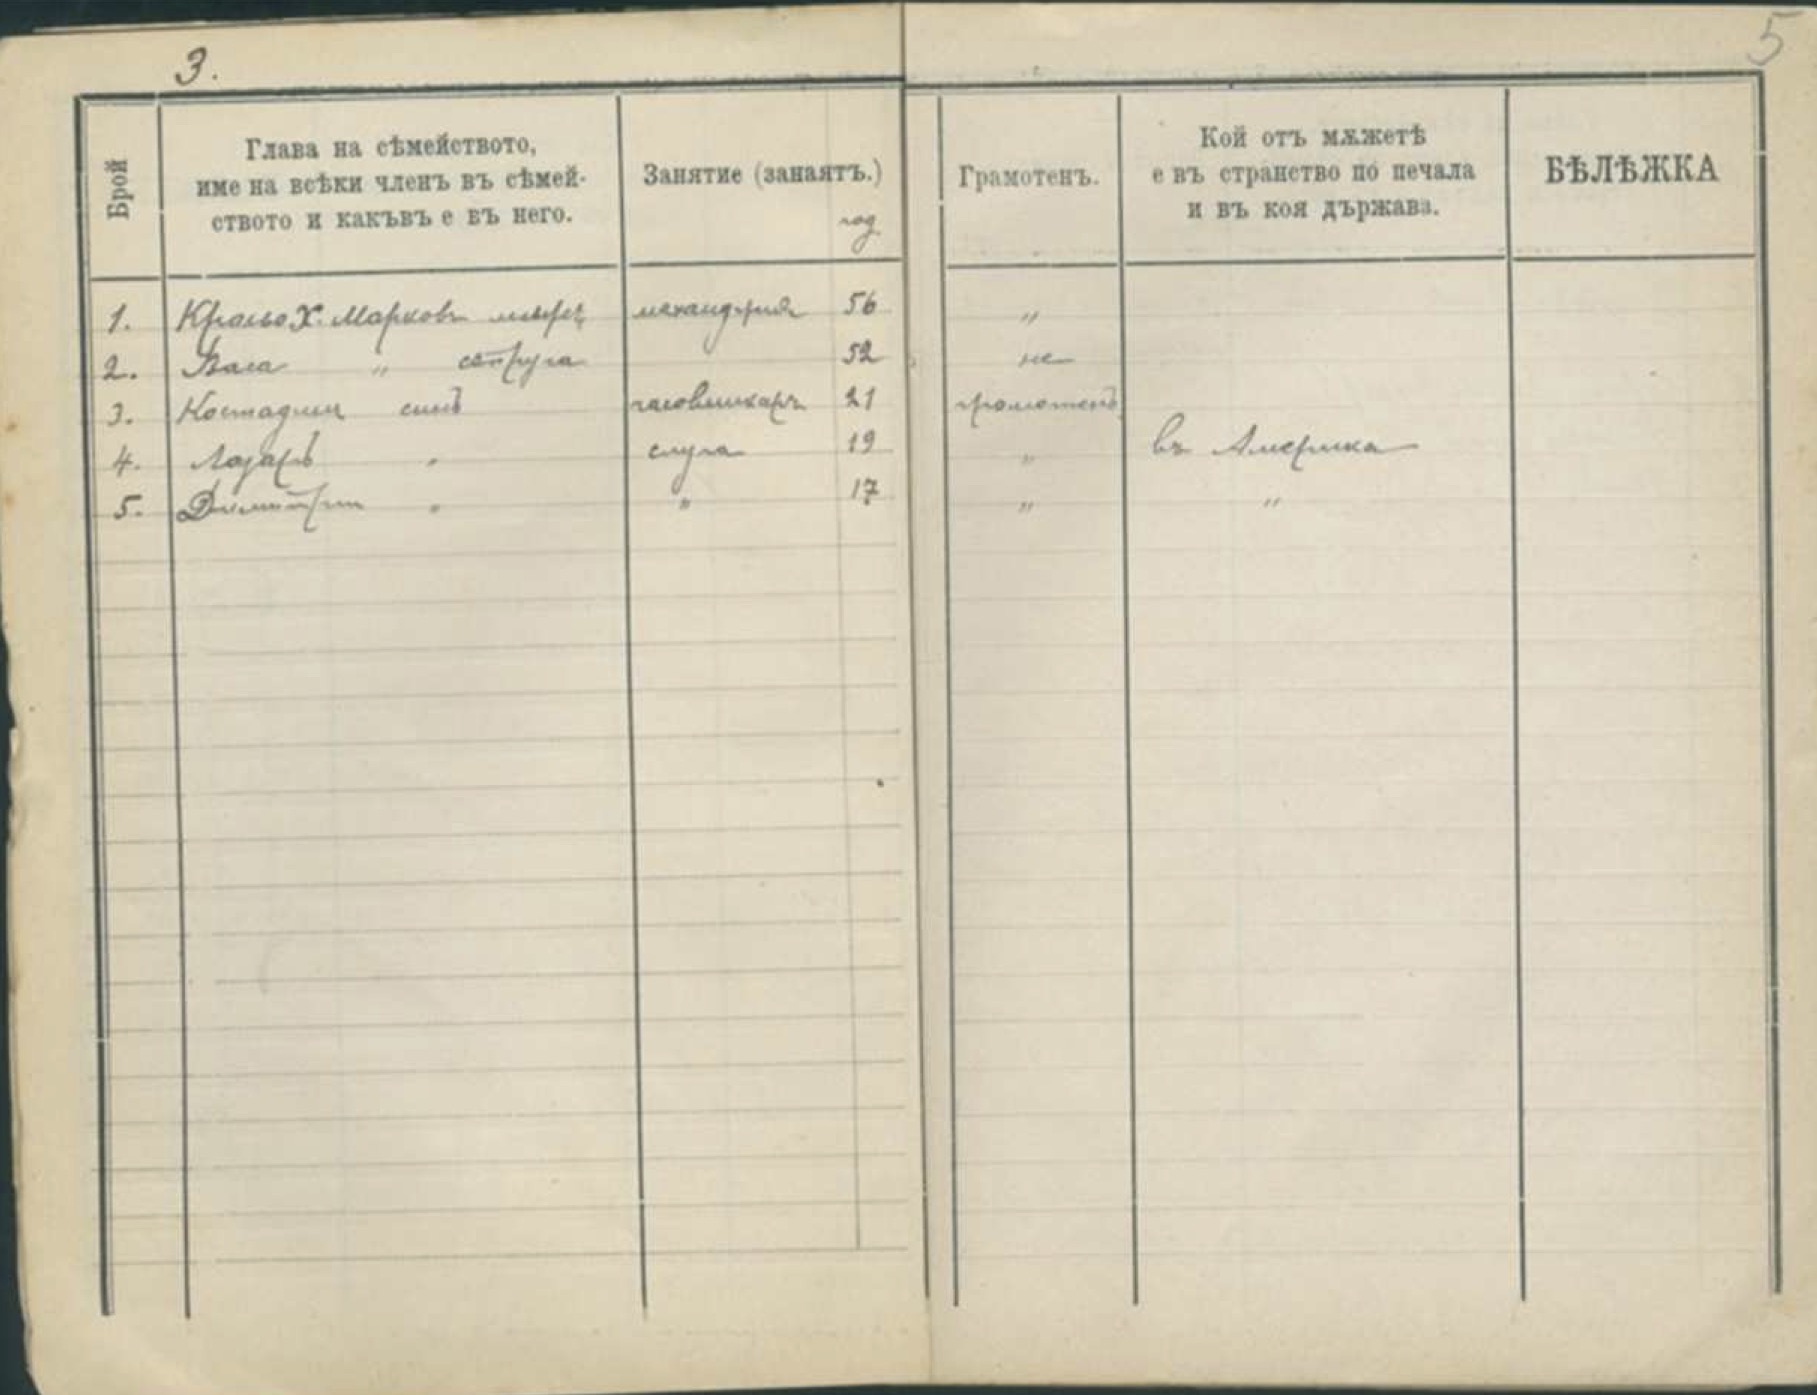 3.
5
Брой
Глава на сѣмейството,
име на всѣки членъ въ сѣмей-
ството и какъвъ е въ него.
Занятие (занаятъ.)
год
Грамотенъ.
Кой отъ мѫжетѣ
е въ странство по печала
и въ коя държава.
БѢЛѢЖКА
1. Кральо Х. Марковъ механджия 56 "
2. Васа " съпруга 52 не
3. Костадин синъ часовникарь 21 громотенъ
4. Лазаръ " слуга 19 " въ Америка
5. Димитри " " 17 " "